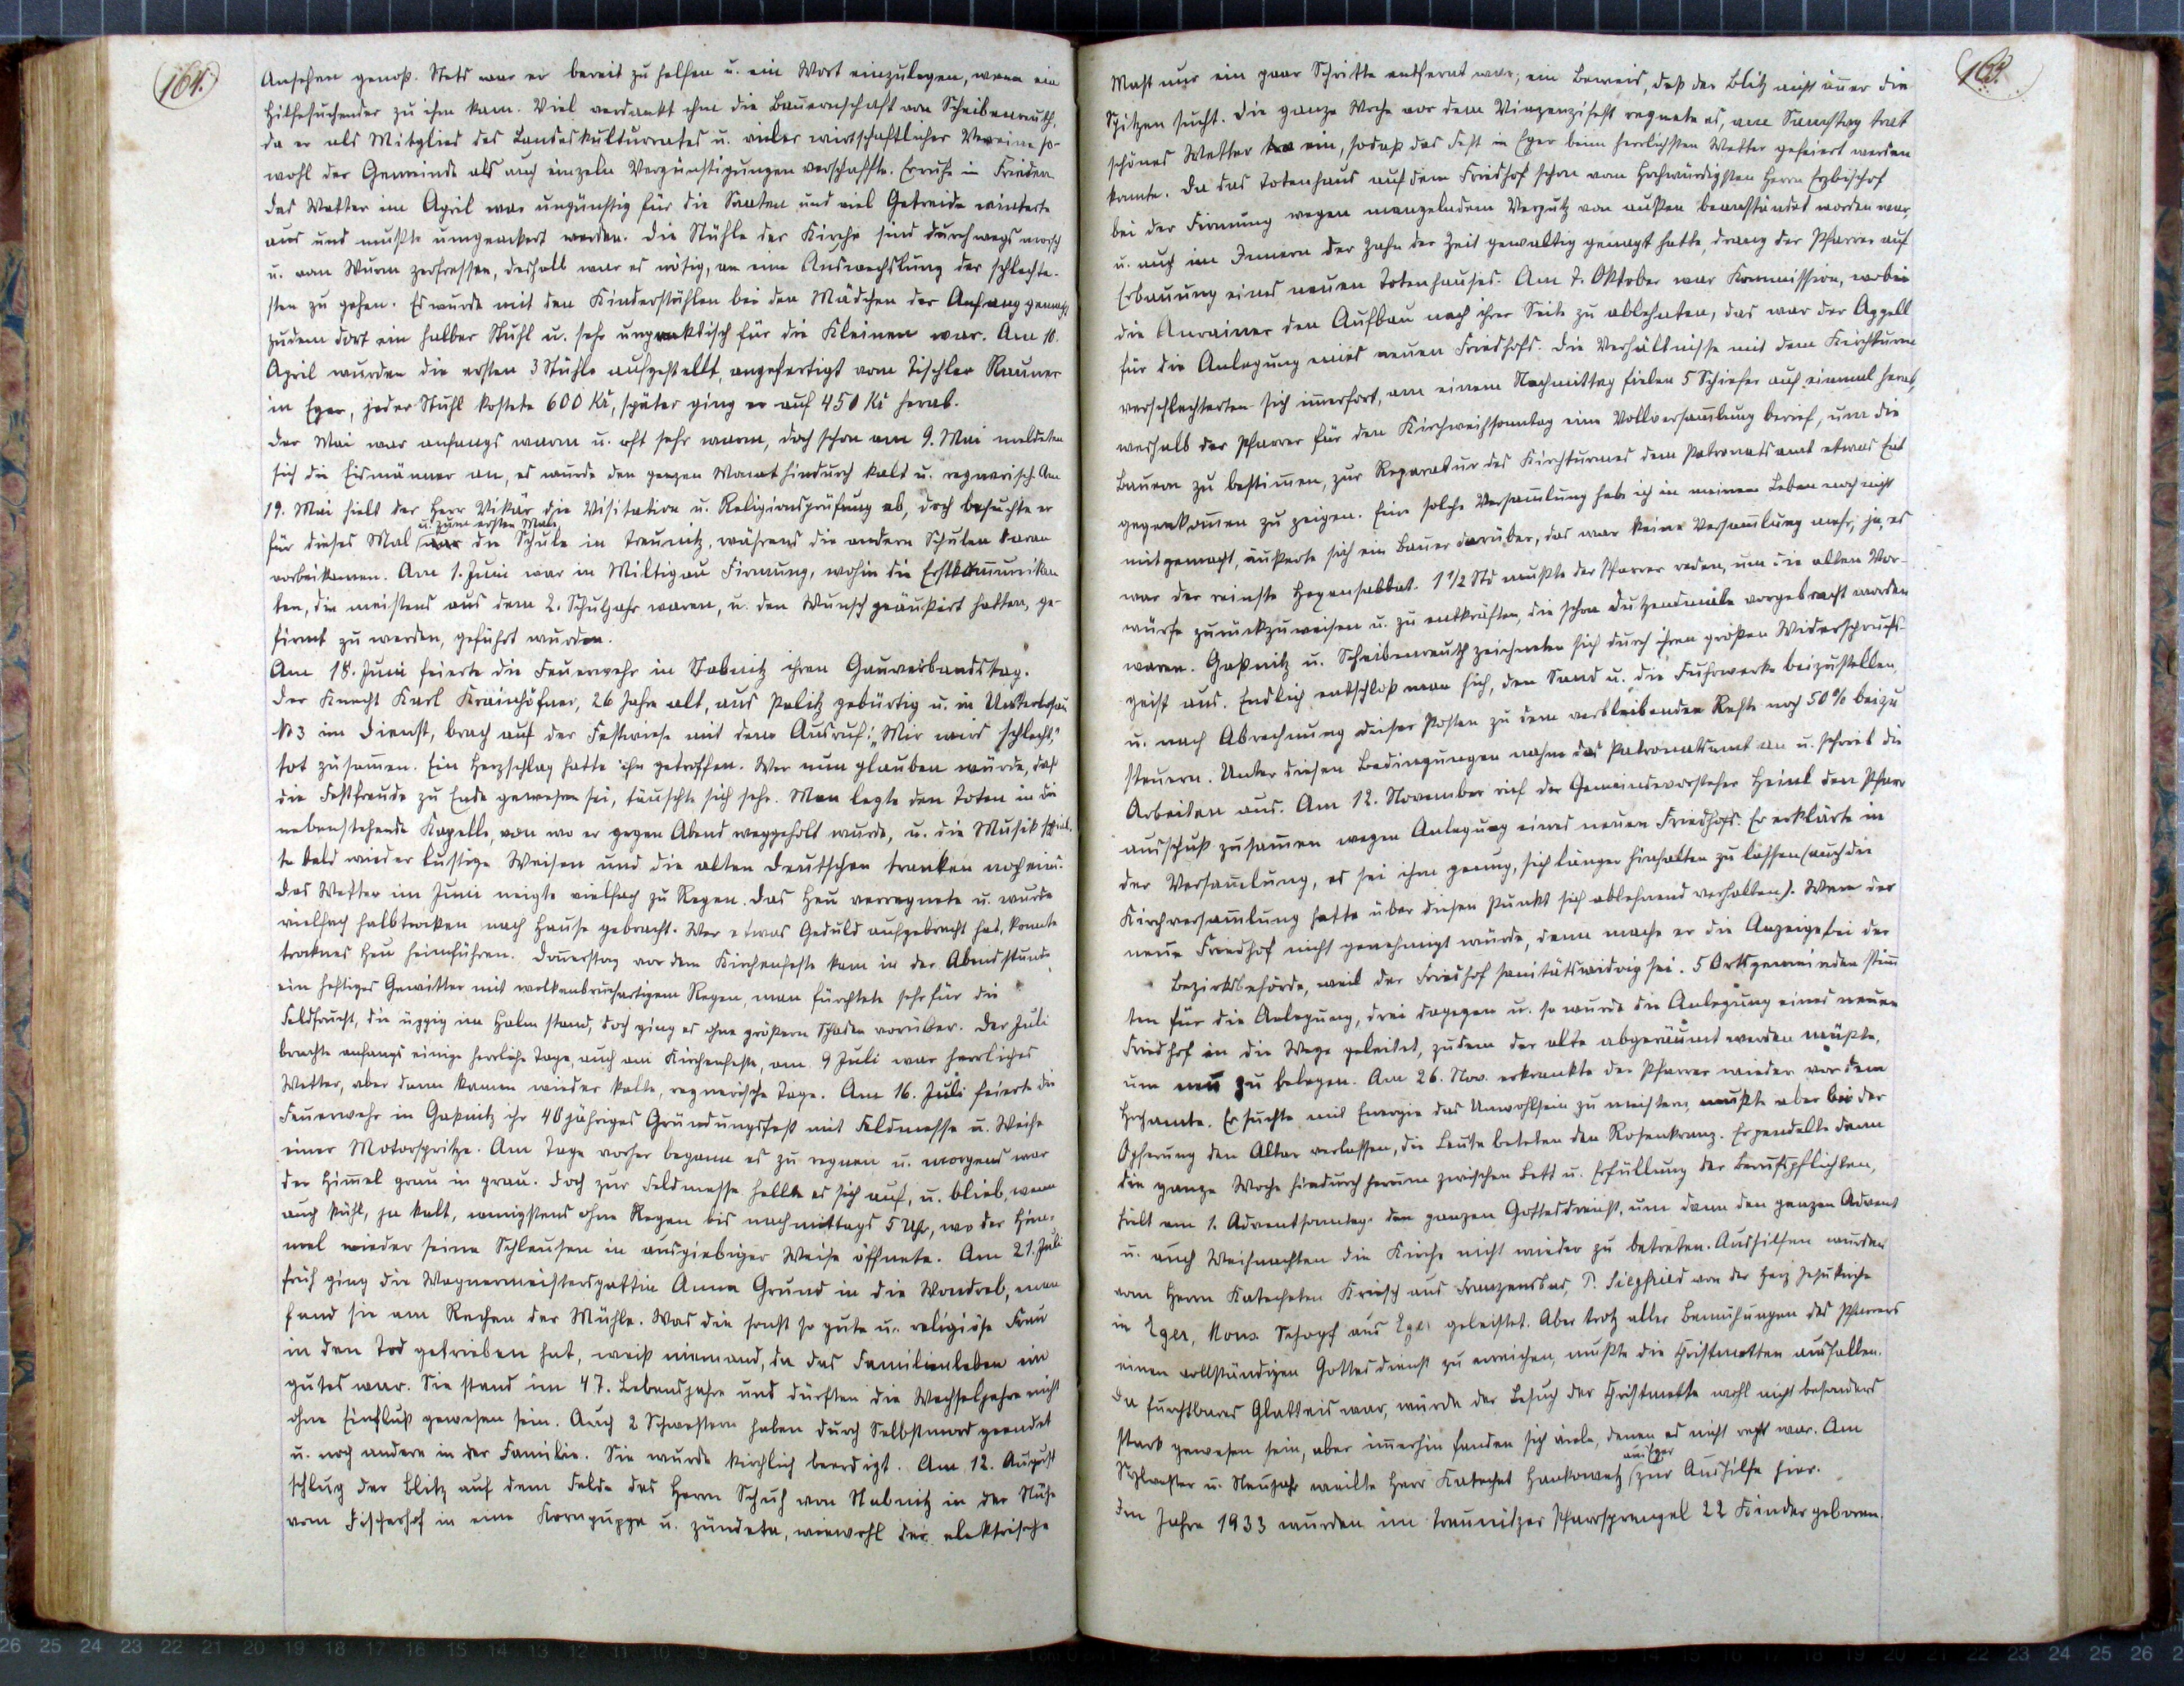 164.
Ansehen genoß. Stets war er bereit zu helfen u. ein Wort einzulegen, wenn ein
Hilfesuchender zu ihm kam. Viel verdankt ihm die Bauernschaft von Scheibenreuth,
da er als Mitglied des Landeskulturrates u. vieler wirtschaftlicher Vereine so-
wohl der Gemeinde als auch einzeln Vergünstigungen verschaffte. Er ruhe in Frieden.
Das Wetter im April war ungünstig für die Saaten und viel Getreide winterte
aus und mußte umgeackert werden. Die Stühle der Kirche sind durchwegs morsch
u. vom Wurm zerfressen, deshalb war es nötig, an eine Auswechslung der schlechte-
sten zu gehen. Es wurde mit den Kinderstühlen bei den Mädchen der Anfang gemacht,
zudem dort ein halber Stuhl u. sehr unpraktisch für die Kleinen war. Am 10.
April wurden die ersten 3 Stühle aufgestellt, angefertigt vom Tischler Rauner
in Eger, jeder Stuhl kostete 600 Kč, später ging er auf 450 Kč herab.
Der Mai war anfangs warm u. oft sehr warm, doch schon am 9. Mai meldeten
sich die Eismänner an, es wurde den ganzen Monat hindurch kalt u. regnerisch. Am
19. Mai hielt der Herr Vikär die Visitation u. Religionsprüfung ab, doch besuchte er
u. zum ersten Male
für dieses Mal nur die Schule in Treunitz, während die andern Schulen daran
vorbeikamen. Am 1. Juni war in Miltigau Firmung, wohin die Erstkommunikan
ten, die meistens aus dem 2. Schuljahr waren, u. den Wunsch geäußert hatten, ge-
firmt zu werden, geführt wurden.
Am 18. Juni feierte die Feuerwehr in Stabnitz ihren Gauverbandstag.
Der Knecht Karl Krainhöfner, 26 Jahre alt, aus Palitz gebürtig u. in Unterlosau
№ 3 im Dienst, brach auf der Festwiese mit dem Ausruf: „Mir wird schlecht,"
tot zusammen. Ein Herzschlag hatte ihn getroffen. Wer nun glauben würde, daß
die Festfreude zu Ende gewesen sei, täuschte sich sehr. Man legte den Toten in die
nebenstehende Kapelle, von wo er gegen Abend weggeholt wurde, u. die Musik spiel-
te bald wieder lustige Weisen und die alten Deutschen tranken noch eins.
Das Wetter im Juni neigte vielfach zu Regen. Das Heu verregnete u. wurde
vielfach halbtrocken nach Hause gebracht. Wer etwas Geduld aufgebracht hat, konnte
trocknes Heu heimführen. Donnerstag vor dem Kirchenfeste kam in der Abendstunde
ein heftiges Gewitter mit wolkenbruchartigem Regen, man fürchtete sehr für die
Feldfrucht, die üppig im Halm stand, doch ging es ohne größern Schaden vorüber. Der Juli
brachte anfangs einige herrliche Tage, auch am Kirchenfeste, am 9 Juli war herrliches
Wetter, aber dann kamen wieder kalte, regnerische Tage. Am 16. Juli feierte die
Feuerwehr in Gaßnitz ihr 40 jähriges Gründungsfest mit Feldmesse u. Weihe
einer Motorspritze. Am Tage vorher begann es zu regnen u. morgens war
der Himmel grau in grau. Doch zur Feldmesse hellte es sich auf, u. blieb, wenn
auch kühl, ja kalt, wenigstens ohne Regen bis nachmittags 5 Uhr, wo der Him-
mel wieder seine Schleusen in ausgiebiger Weise öffnete. Am 21. Juli
früh ging die Wagnermeistersgattin Anna Grund in die Wondreb, man
fand sie am Rechen der Mühle. Was die sonst so gute u. religiöse Frau
in den Tod getrieben hat, weiß niemand, da das Familienleben ein
gutes war. Sie stand im 47. Lebensjahre und dürften die Wechseljahre nicht
ohne Einfluß gewesen sein. Auch 2 Schwestern haben durch Selbstmord geendet
u. noch andere in der Familie. Sie wurde kirchlich beerdigt. Am 12. August
schlug der Blitz auf dem Felde des Herrn Schuh von Stabnitz in der Nähe
vom Fischerhof in eine Kornpuppe u. zündete, wiewohl der elektrische
165.
Mast nur ein paar Schritte entfernt war, ein Beweis, daß der Blitz nicht immer die
Spitzen sucht. Die ganze Woche vor dem Vinzenzifest regnete es, am Samstag trat
schönes Wetter ein, sodaß das Fest in Eger beim herrlichsten Wetter gefeiert werden
konnte. Da das Totenhaus auf dem Friedhof schon vom Hochwürdigsten Herrn Erzbischof
bei der Firmung wegen mangelndem Verputz von außen beanständet worden war,
u. auch im Innern der Zahn der Zeit gewaltig genagt hatte, drang der Pfarrer auf
Erbauung eines neuen Totenhauses. Am 7. Oktober war Kommission, wobei
die Anrainer den Aufbau nach ihrer Seite zu ablehnten, das war der Appell
für die Anlegung eines neuen Friedhofs. Die Verhältnisse mit dem Kirchturm
verschlechterten sich immerfort, an einem Nachmittag fielen 5 Schiefer auf einmal herab,
weshalb der Pfarrer für den Kirchweihsonntag eine Vollversammlung berief, um die
Bauern zu bestimmen, zur Reparatur des Kirchturmes dem Patronatsamt etwas Ent
gegenkommen zu zeigen. Eine solche Versammlung habe ich in meinem Leben noch nicht
mitgemacht, äußerte sich ein Bauer darüber, das war keine Versammlung mehr, ja, es
war der reinste Hexensabbat. 1 1/2 Std mußte der Pfarrer reden, um die alten Vor-
würfe zurückzuweisen u. zu entkräften, die schon dutzendmale vorgebracht worden
waren. Gaßnitz u. Scheibenreuth zeichneten sich durch ihren großen Widerspruchs-
geist aus. Endlich entschloß man sich, den Sand u. die Fuhrwerke beizustellen,
u. nach Abrechnung dieser Posten zu dem verbleibenden Reste noch 50 % beizu
steuern. Unter diesen Bedingungen nahm das Patronatsamt an u. schrieb die
Arbeiten aus. Am 12. November rief der Gemeindevorsteher Heinl den Pfarr
ausschuß zusammen wegen Anlegung eines neuen Friedhofs. Er erklärte in
der Versammlung, es sei ihm genug, sich länger hinhalten zu lassen (auch die
Kirchversammlung hatte über diesen Punkt sich ablehnend verhalten). Wenn der
neue Friedhof nicht genehmigt würde, dann mache er die Anzeige bei der
Bezirksbehörde, weil der Friedhof sanitätswidrig sei. 5 Ortsgemeinden stimm
ten für die Anlegung, drei dagegen u. so wurde die Anlegung eines neuen
Friedhof in die Wege geleitet, zudem der alte abgeräumt werden müßte,
um neu zu belegen. Am 26. Nov. erkrankte der Pfarrer wieder vor dem
Hochamte. Er suchte mit Energie das Unwohlsein zu meistern, mußte aber bei der
Opferung den Altar verlassen, die Leute beteten den Rosenkranz. Er pendelte dann
die ganze Woche hindurch herum zwischen Bett u. Erfüllung der Berufspflichten,
hielt am 1. Adventsonntag den ganzen Gottesdienst, um dann den ganzen Advent
u. auch Weihnachten die Kirche nicht wieder zu betreten. Aushilfen wurden
vom Herrn Katecheten Kriesch aus Franzensbad, P. Siegfried von der Herz Jesukirche
in Eger, Mons. Schopf aus Eger geleistet. Aber trotz aller Bemühungen des Pfarrers
einen vollständigen Gottesdienst zu erreichen, mußte die Christmetten ausfallen.
Da furchtbares Glatteis war, würde der Besuch der Christmette wohl nicht besonders
stark gewesen sein, aber immerhin fanden sich viele, denen es nicht recht war. Am
aus Eger
Sylvester u. Neujahr weilte Herr Katechet Hankowetz zur Aushilfe hier.
Im Jahre 1933 wurden im Treunitzer Pfarrsprengel 22 Kinder geboren.